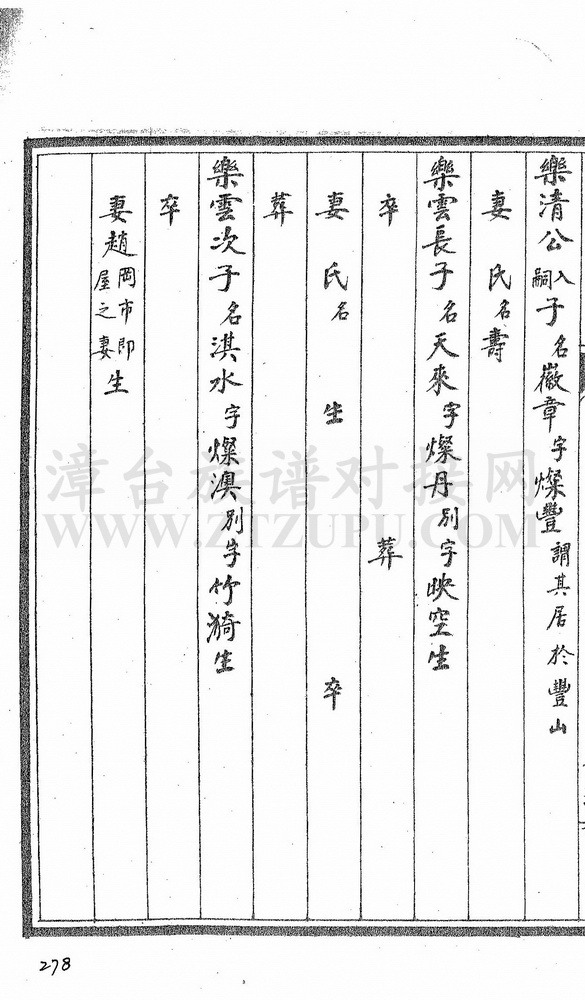 樂清公入嗣子名徽章字燦豐謂其居於豐山
妻 氏名壽
樂雲長子名天來字燦丹別字映空生
卒 葬
妻 氏名 生 卒
葬
樂雲次子名淇水字燦澳別字竹猗生
卒
妻趙岡市即屋之妻生
278
漳台族谱对接网
WWW.ZTZUPU.COM